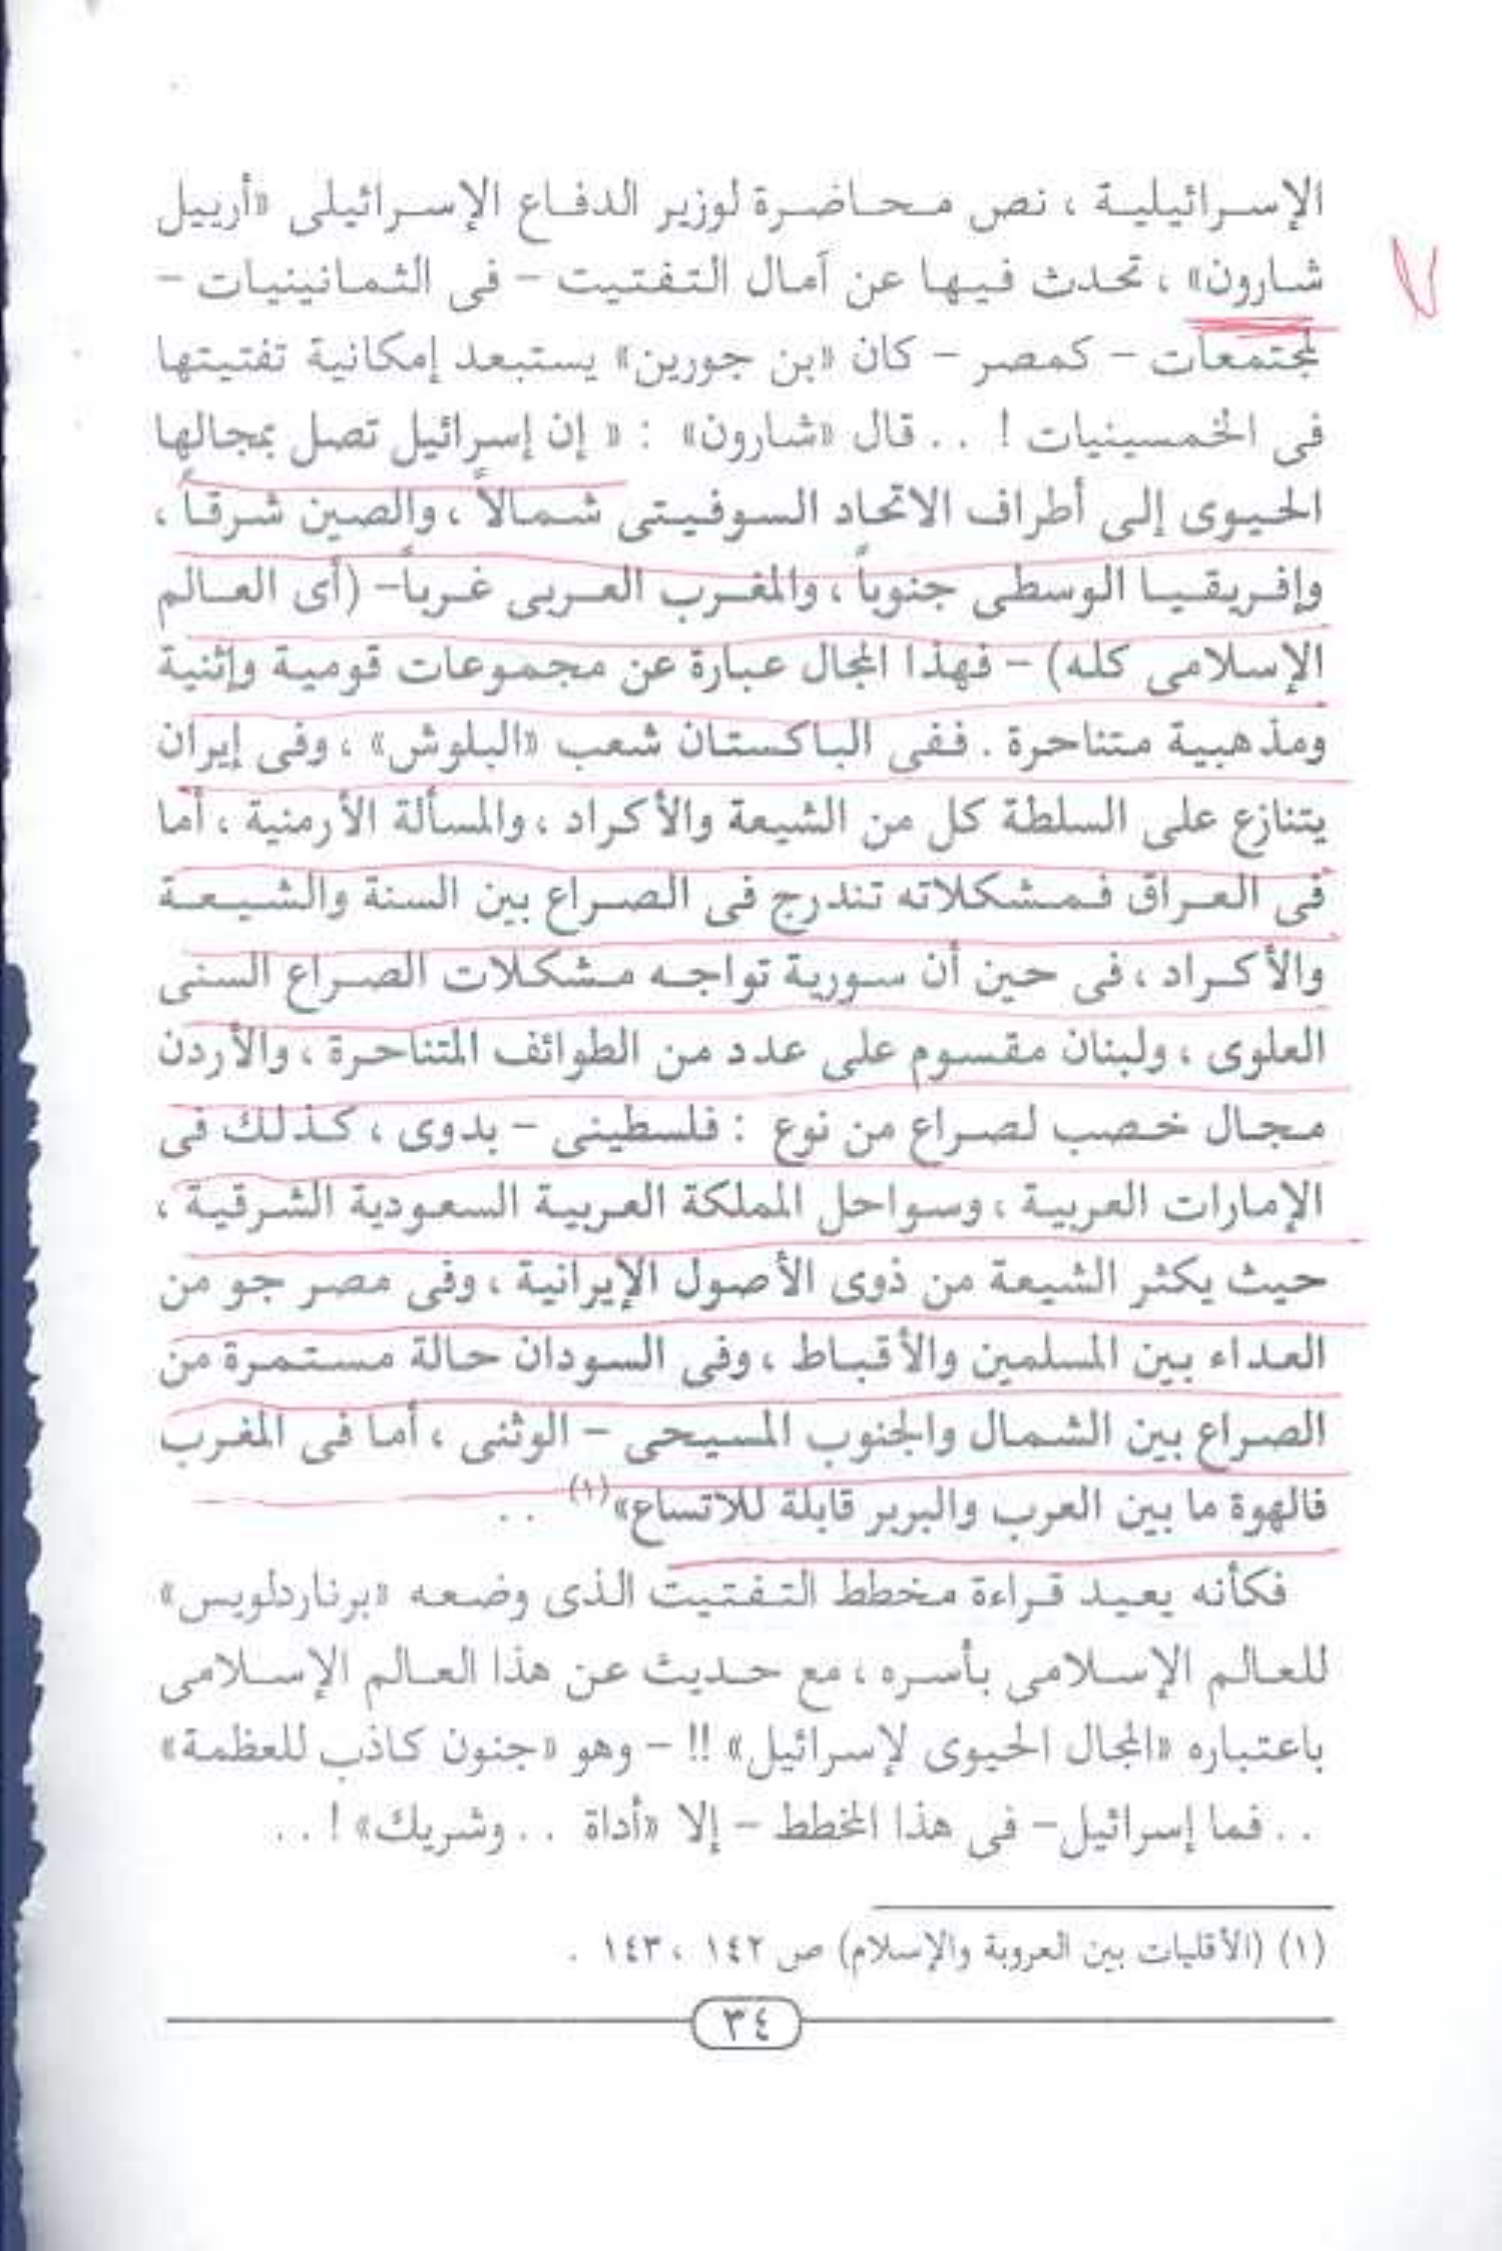 الإسرائيلية ، نص محاضرة لوزير الدفاع الإسرائيلى «أرييل
شارون» ، تحدث فيها عن آمال التفتيت - فى الثمانينيات -
لمجتمعات - كمصر - كان «بن جورين» يستبعد إمكانية تفتيتها
فى الخمسينيات ! .. قال «شارون» : « إن إسرائيل تصل بمجالها
الحيوى إلى أطراف الاتحاد السوفيتى شمالاً ، والصين شرقاً ،
وإفريقيا الوسطى جنوباً ، والمغرب العربى غرباً- (أى العالم
الإسلامى كله) - فهذا المجال عبارة عن مجموعات قومية وإثنية
ومذهبية متناحرة . ففى الباكستان شعب «البلوش» ، وفى إيران
يتنازع على السلطة كل من الشيعة والأكراد ، والمسألة الأرمنية ، أما
فى العراق فمشكلاته تندرج فى الصراع بين السنة والشيعة
والأكراد ، فى حين أن سورية تواجه مشكلات الصراع السنى
العلوى ، ولبنان مقسوم على عدد من الطوائف المتناحرة ، والأردن
مجال خصب لصراع من نوع : فلسطينى - بدوى ، كذلك فى
الإمارات العربية ، وسواحل المملكة العربية السعودية الشرقية ،
حيث يكثر الشيعة من ذوى الأصول الإيرانية ، وفى مصر جو من
العداء بين المسلمين والأقباط ، وفى السودان حالة مستمرة من
الصراع بين الشمال والجنوب المسيحى - الوثنى ، أما فى المغرب
فالهوة ما بين العرب والبربر قابلة للاتساع»(١) ..
فكأنه يعيد قراءة مخطط التفتيت الذى وضعه «برناردلويس»
للعالم الإسلامى بأسره ، مع حديث عن هذا العالم الإسلامى
باعتباره «المجال الحيوى لإسرائيل» !! - وهو «جنون كاذب للعظمة»
.. فما إسرائيل- فى هذا المخطط - إلا «أداة .. وشريك» ! ..
(١) (الأقليات بين العروبة والإسلام) ص ١٤٢ ، ١٤٣ .
٣٤